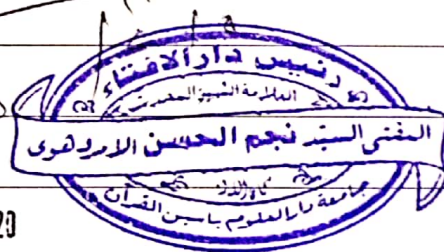 رئيس دار الافتاء
العلامة الشهير الحضرت
المفتى السيّد نجم الحسن الامردهوى
جامعة دار العلوم ياسين القرآن
20